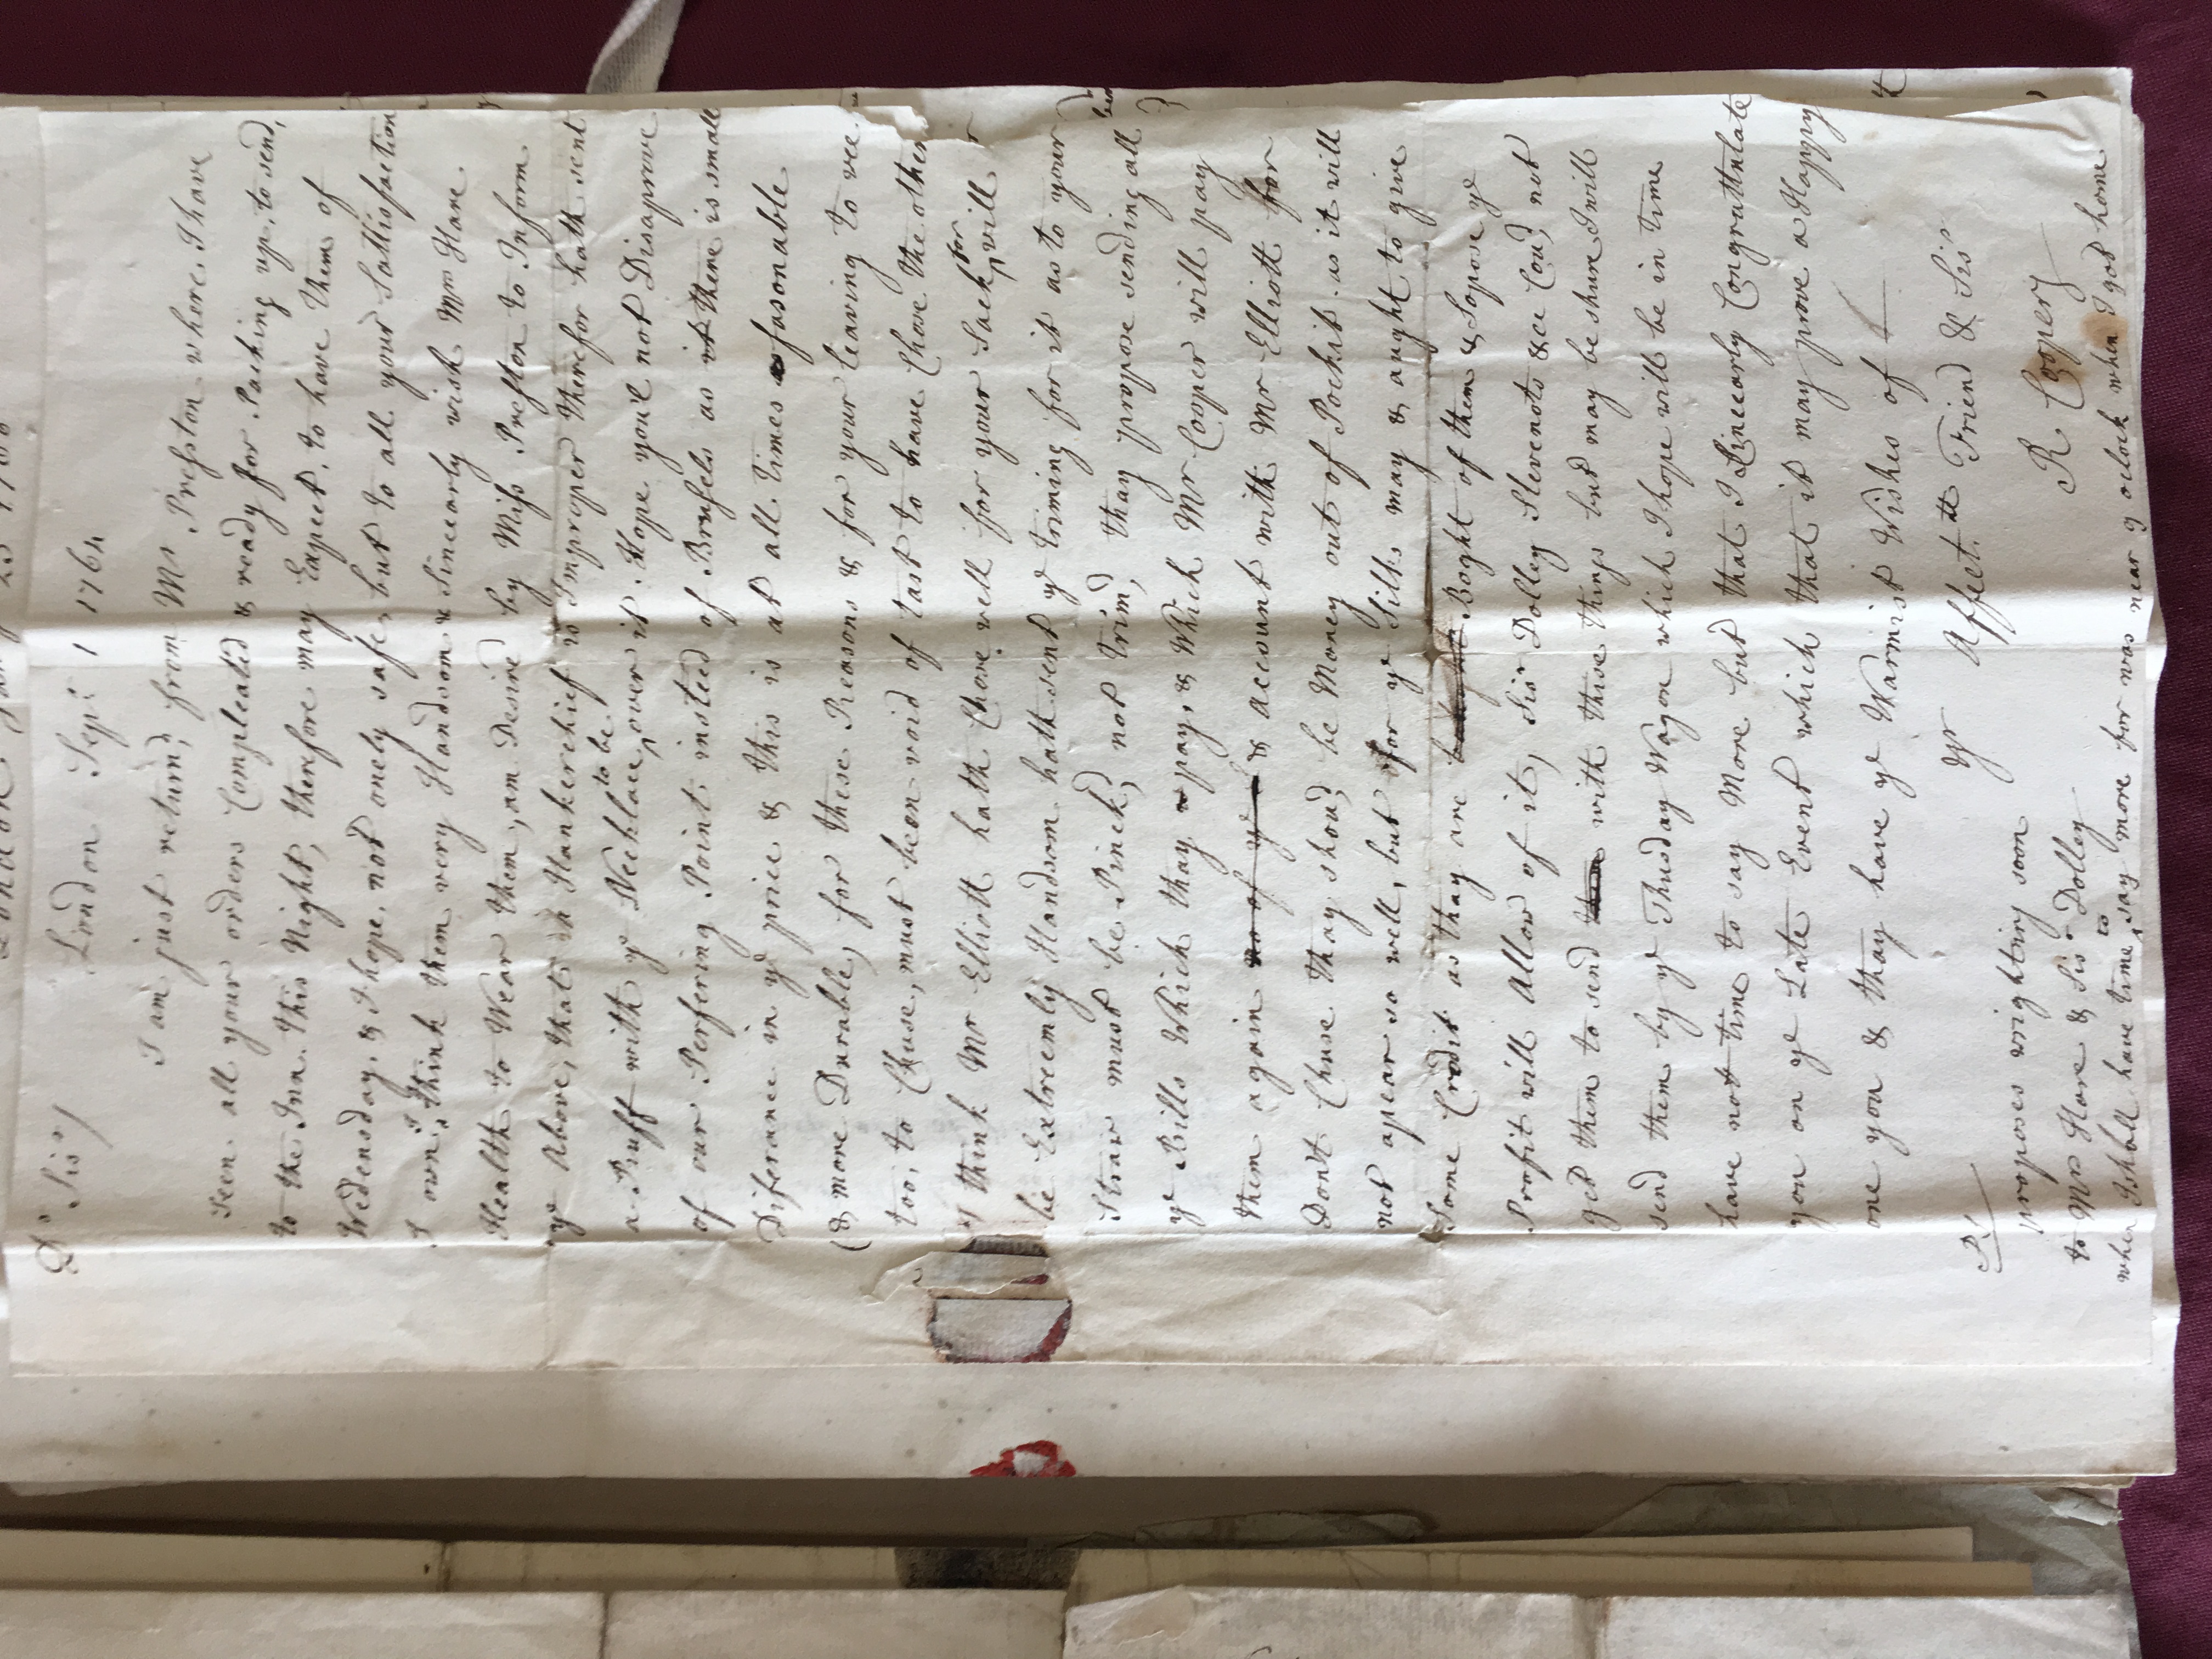 London Jan 23 176
Dr Sisr/ London Sepr 1 1764
I am just return'd, from Mr Presston where I have
seen all your orders Compleated & ready for Packing up, to send,
to the Inn this Night, therefore may Expect, to have them of
Wedensday, & I hope, not onely safe, but to all your Sattisfaction
I own I think them very Handsom & Sinccarly wish Mrs Hare
Health to Wear them, am Desire'd by Miss Presston to Inform
ye Above, that Hankerchief is Improper therefor hath sent
a Ruff with ye Necklace to be over it. Hope you'l not Disaprove
of our Perfering Point insteed of Brussels as it there is small
Diferance in ye price & this is at all times fasonable
(& more Durable, for these Reasons & for your leaving to wee
too, to Chuse, must been void of tast to have Chose the other
I think Mr Elliott hath Chose well for your Sack, for will
be Extreemly Handsom hath sent ye triming for it as to your
Straw must be Pinck'd, not trim'd, thay propose sending all
ye Bills Which thay pay, & Which Mr Cooper will pay
them again no of ye & account with Mr Elliott for
Don't Chuse thay shou'd be Money out of Pockit as it will
not apear so well, but for ye Silks may & aught to give
Some Credit as thay are Boght of them & Sopose ye
Profit will Allow of it, Sisr Dolley Slevenots &cc Cou'd, not
get them to send them with these things but may be shure I will
send them by ye Thusday Wagon which I hope will be in time
have nott time to say More but that I Sinccarly Congruttulate
you on ye Late Event which that it may prove a Happy
one you & thay have ye Warmist Wishes of
yr Affect.tt Friend & Sisr
R Cooper
PS/
proposes wrighting soon
to Mrs Hare & Sisr Dolley
when I shall have time to say more for was near 9 oclock when I got home